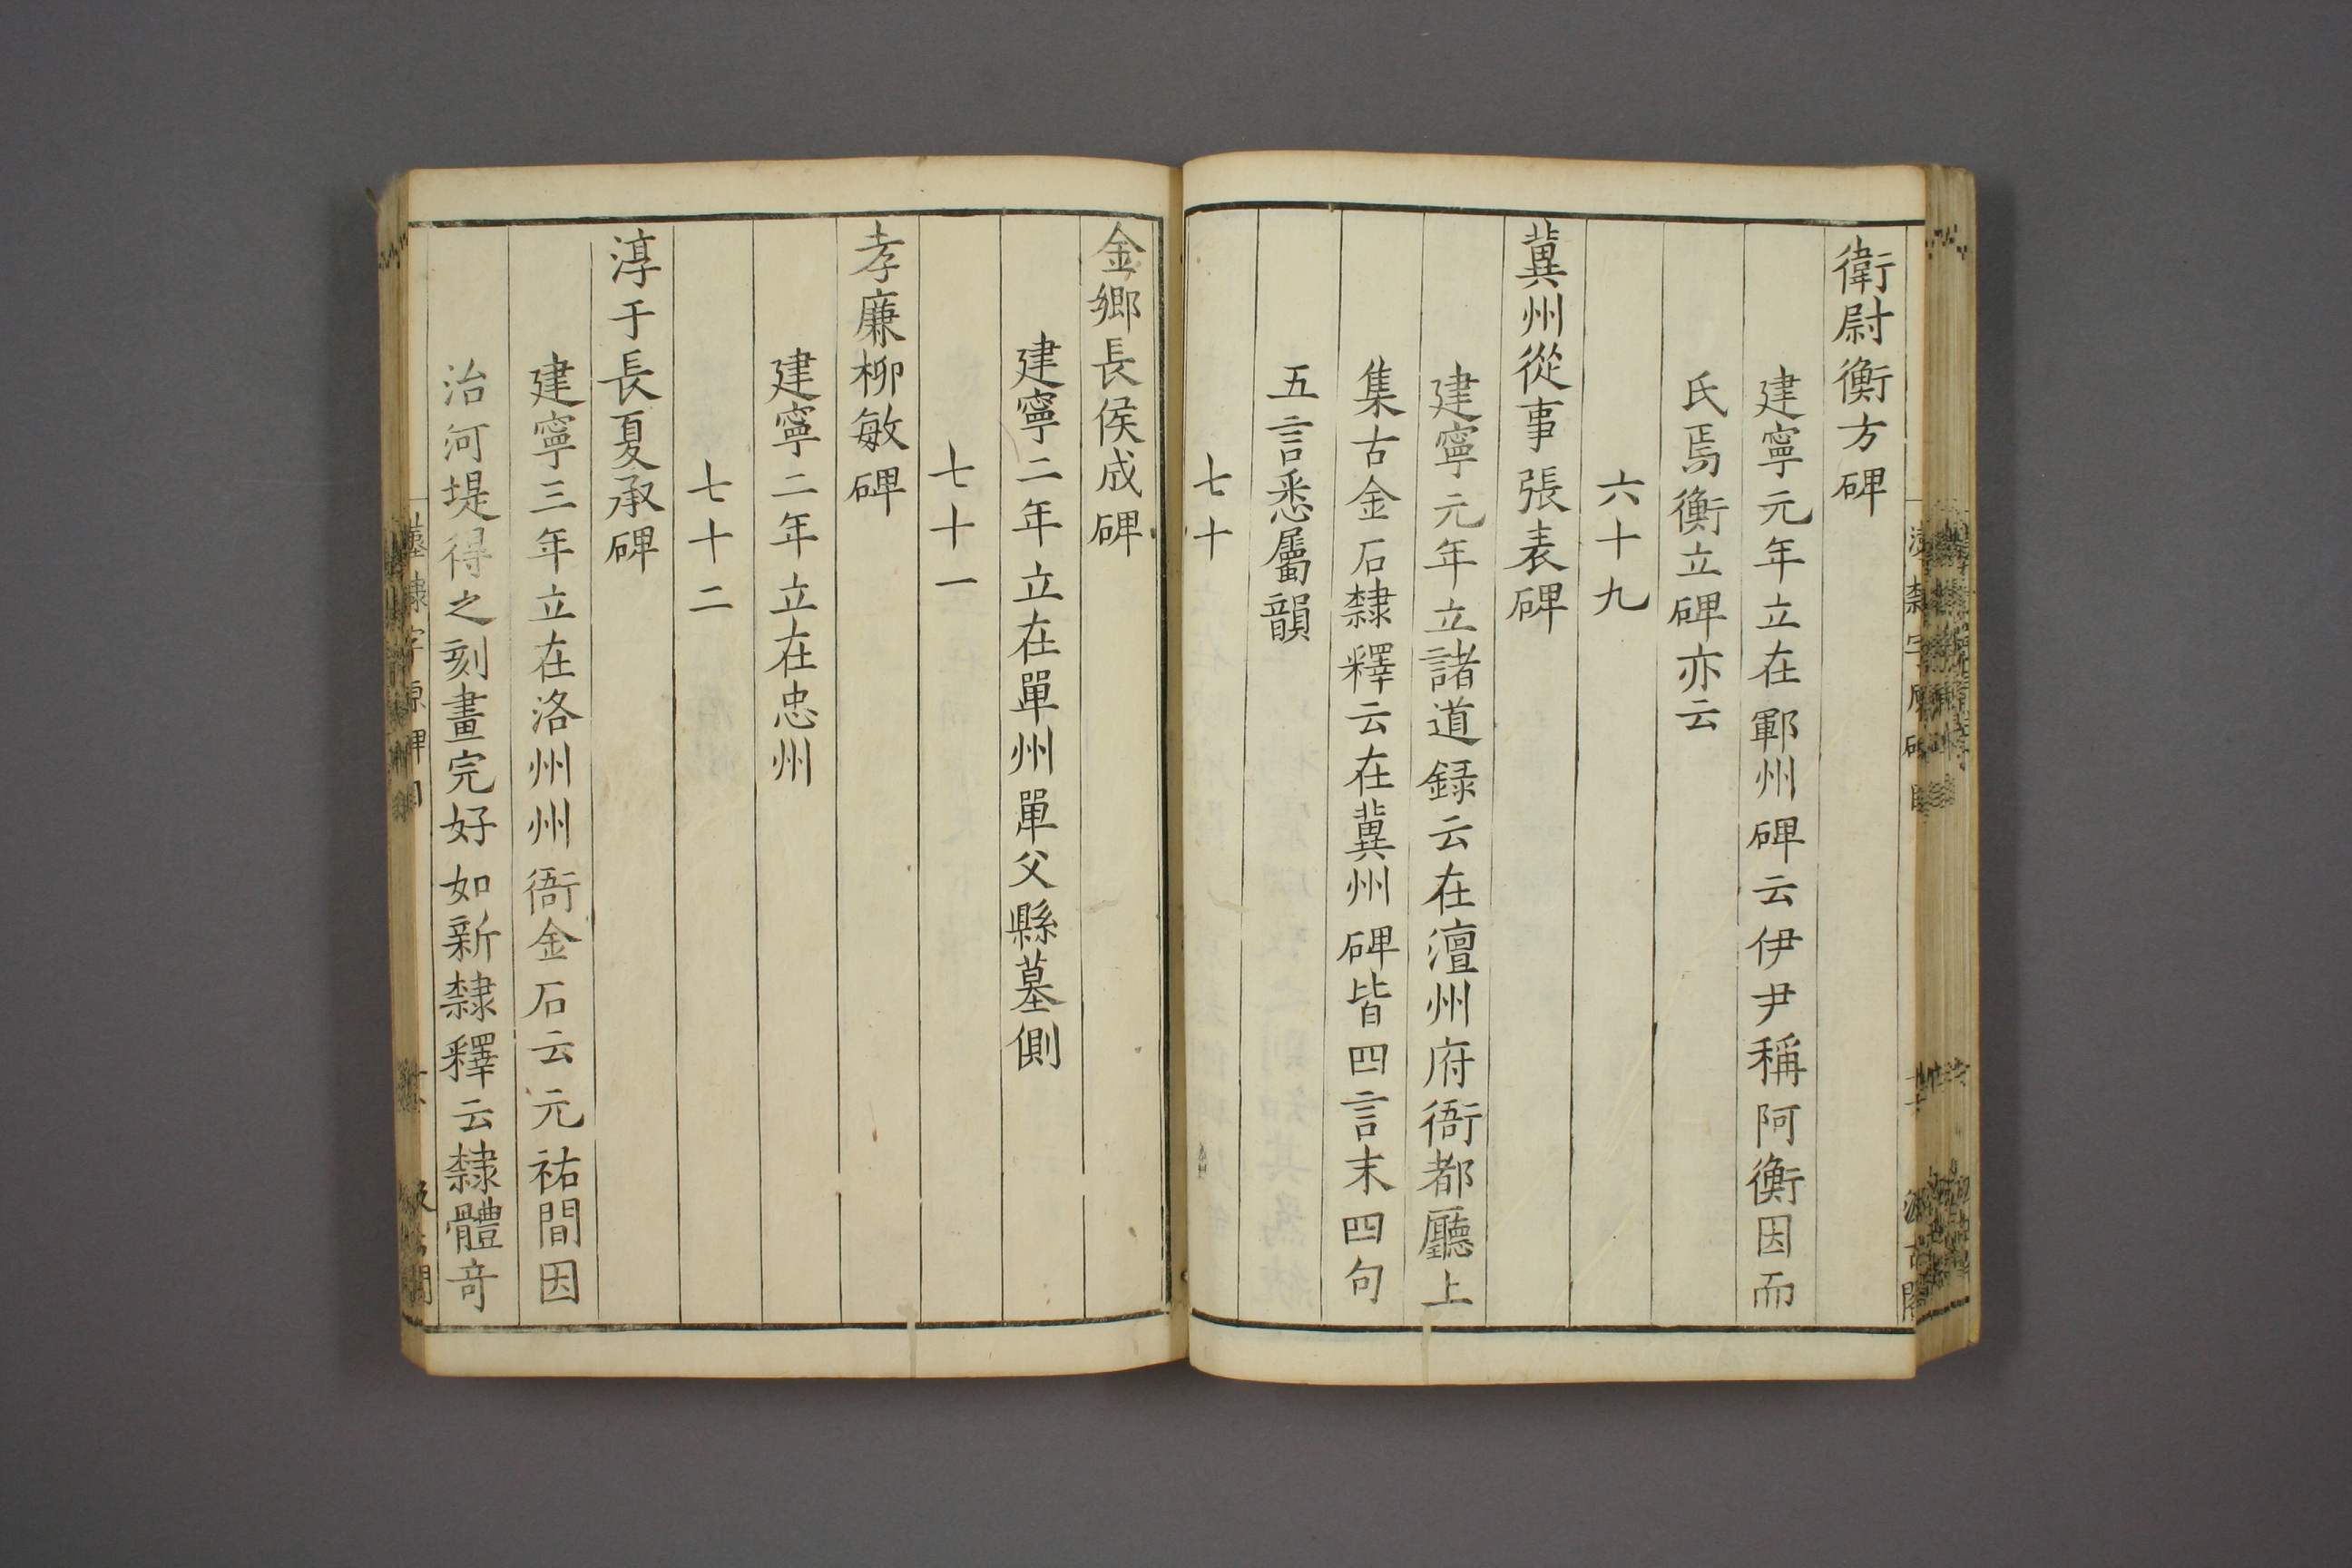 衛尉衡方碑
建寧元年立在鄆州碑云伊尹稱阿衡因而
氏焉衡立碑亦云
六十九
冀州從事張表碑
建寧元年立諸道録云在澶州府衙都廳上
集古金石隸釋云在冀州碑皆四言末四句
五言悉屬韻
七十
金鄉長侯成碑
建寧二年立在單州單父縣墓側
七十一
孝廉柳敏碑
建寧二年立在忠州
七十二
淳于長夏承碑
建寧三年立在洛州州衙金石云元祐間因
治河堤得之刻畫完好如新隸釋云隸體奇